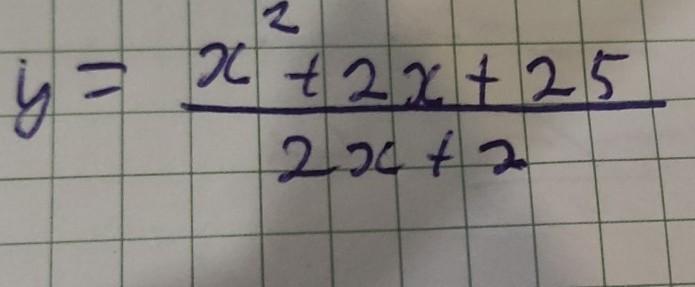 y = x² + 2x + 25
2x + 2